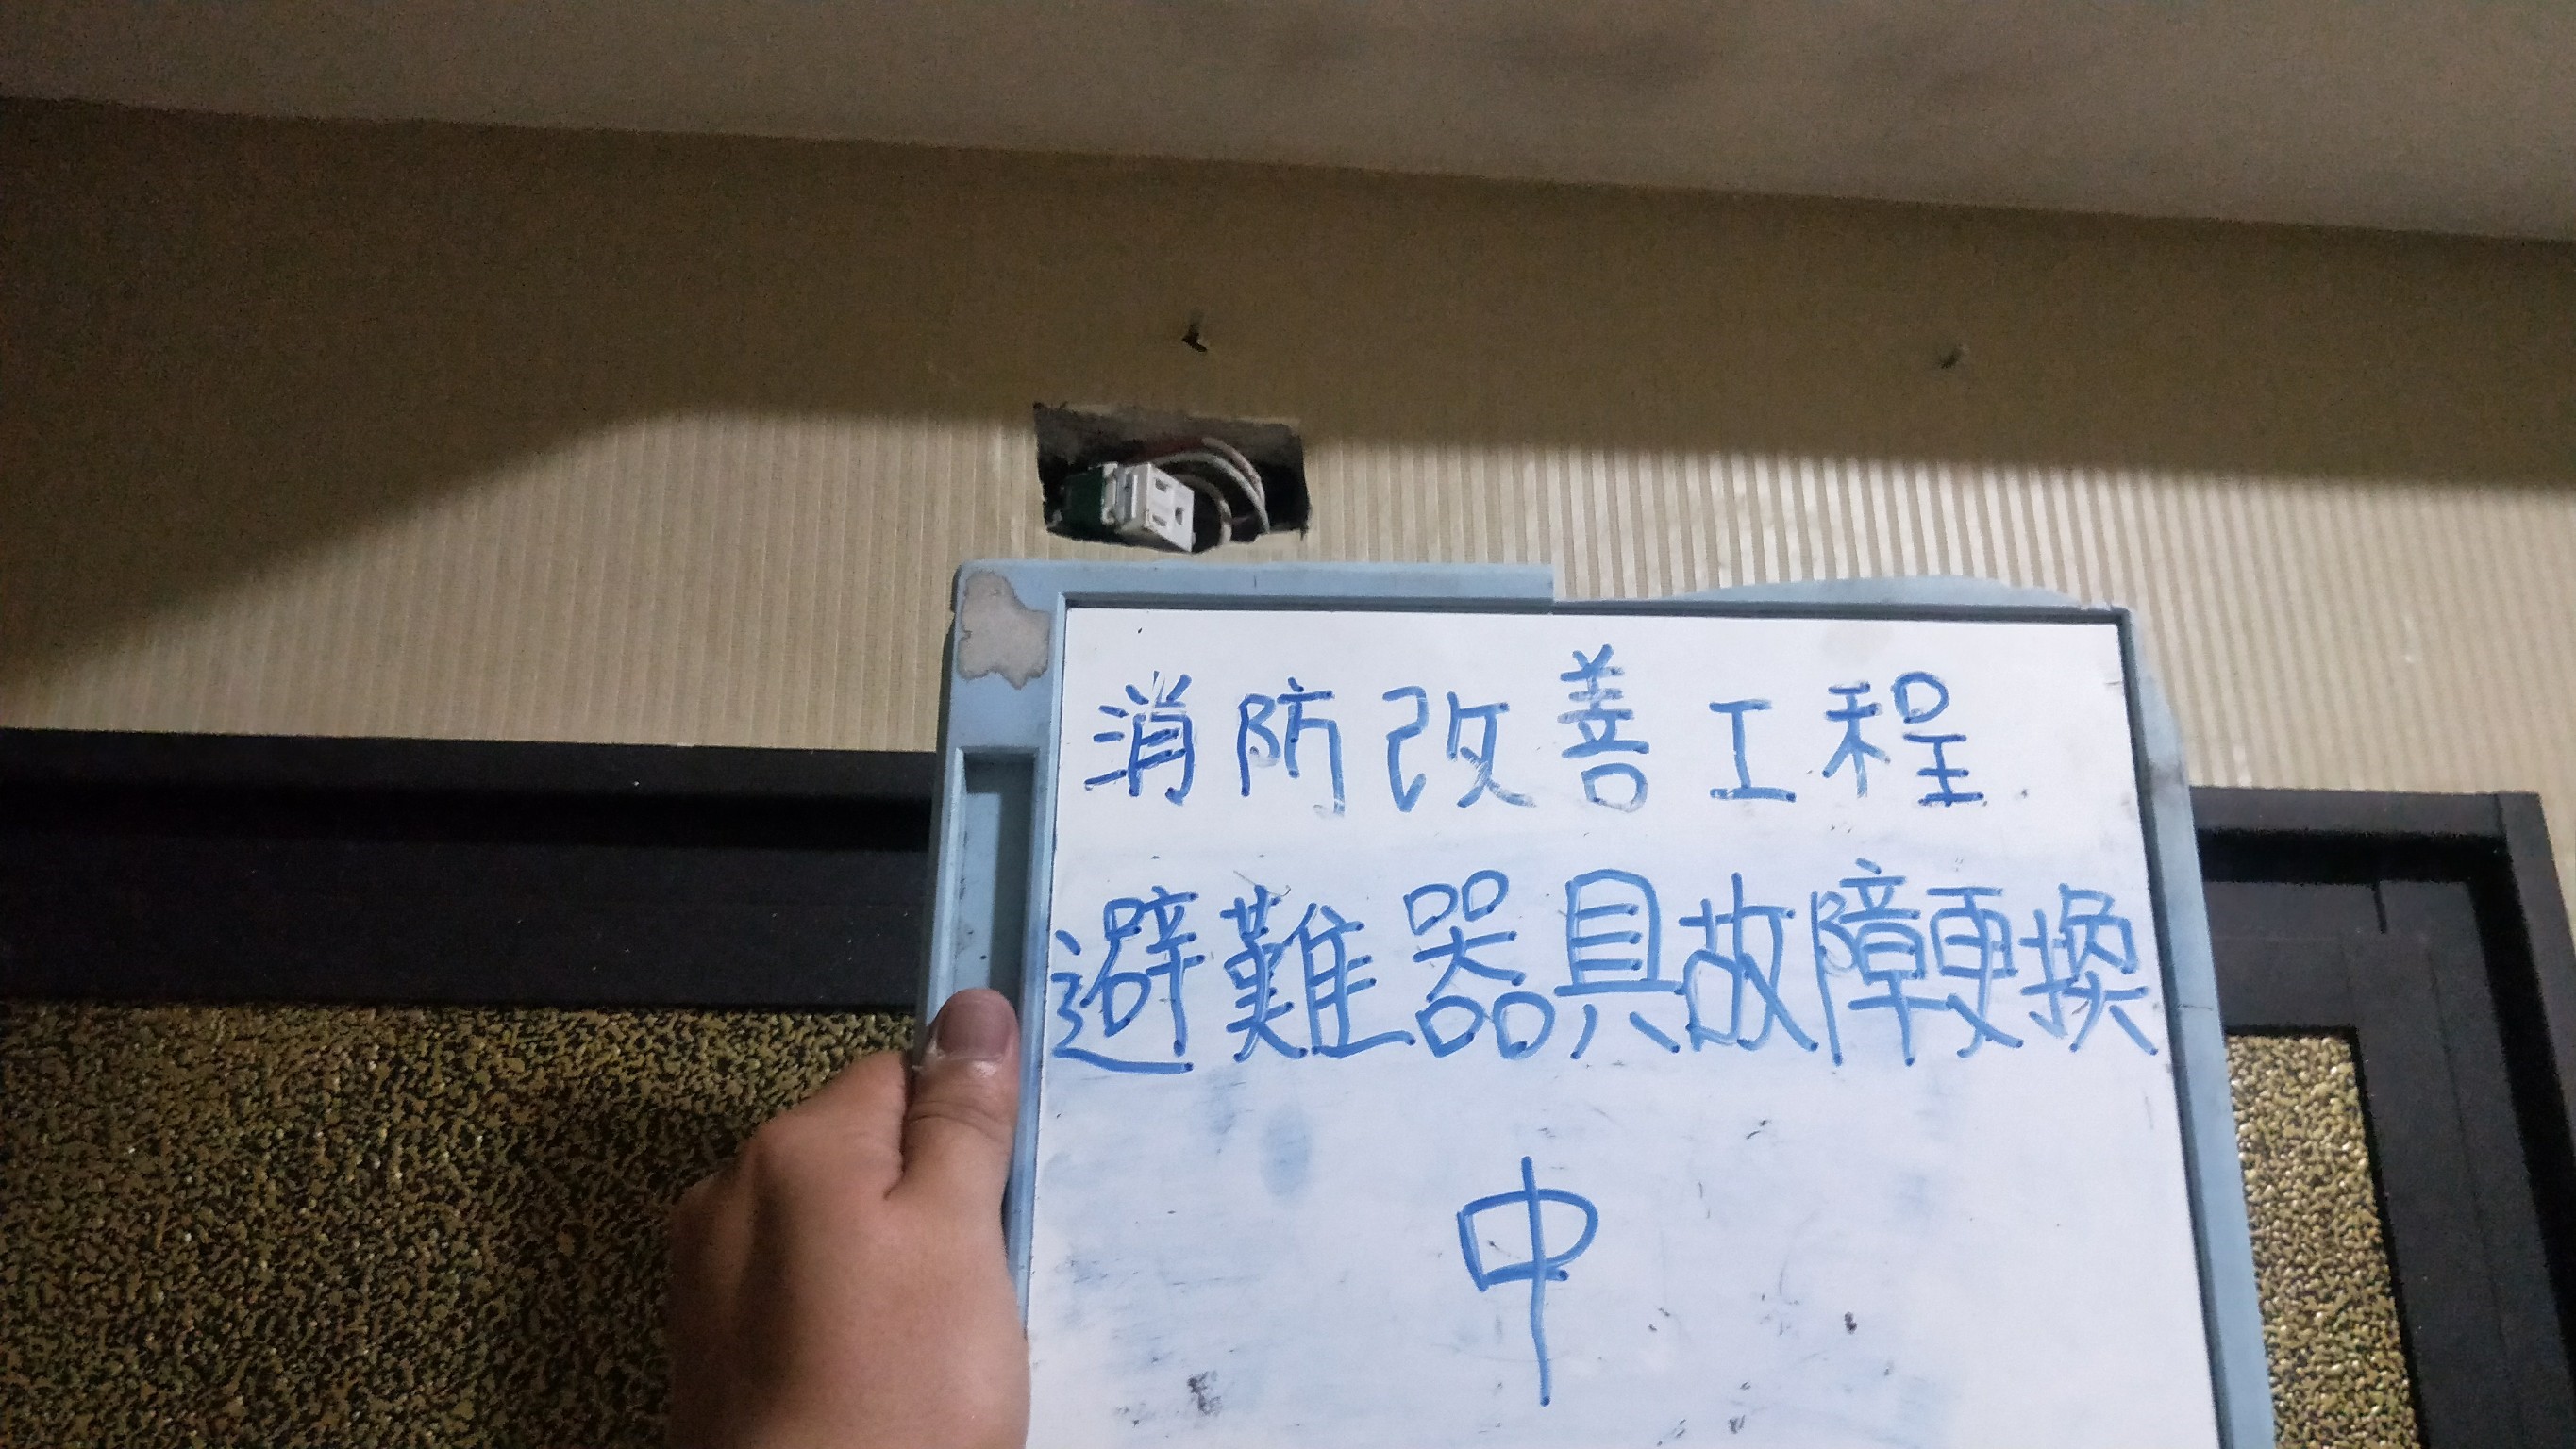 消防改善工程
避難器具故障更換
中